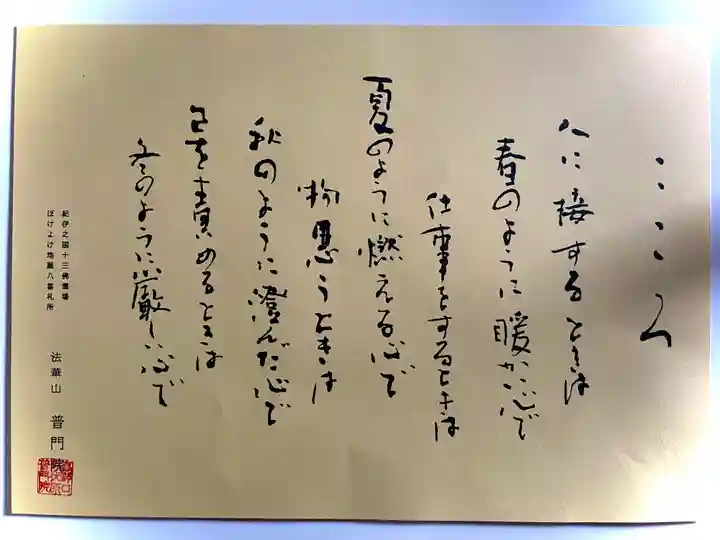 こころ
人に接するときは
春のように暖かい心で
仕事をするときは
夏のように燃える心で
物思うときは
秋のように澄んだ心で
己を責めるときは
冬のように厳しい心で
紀伊之国十三佛霊場
ぼけよけ地蔵八番札所
法華山 普門院